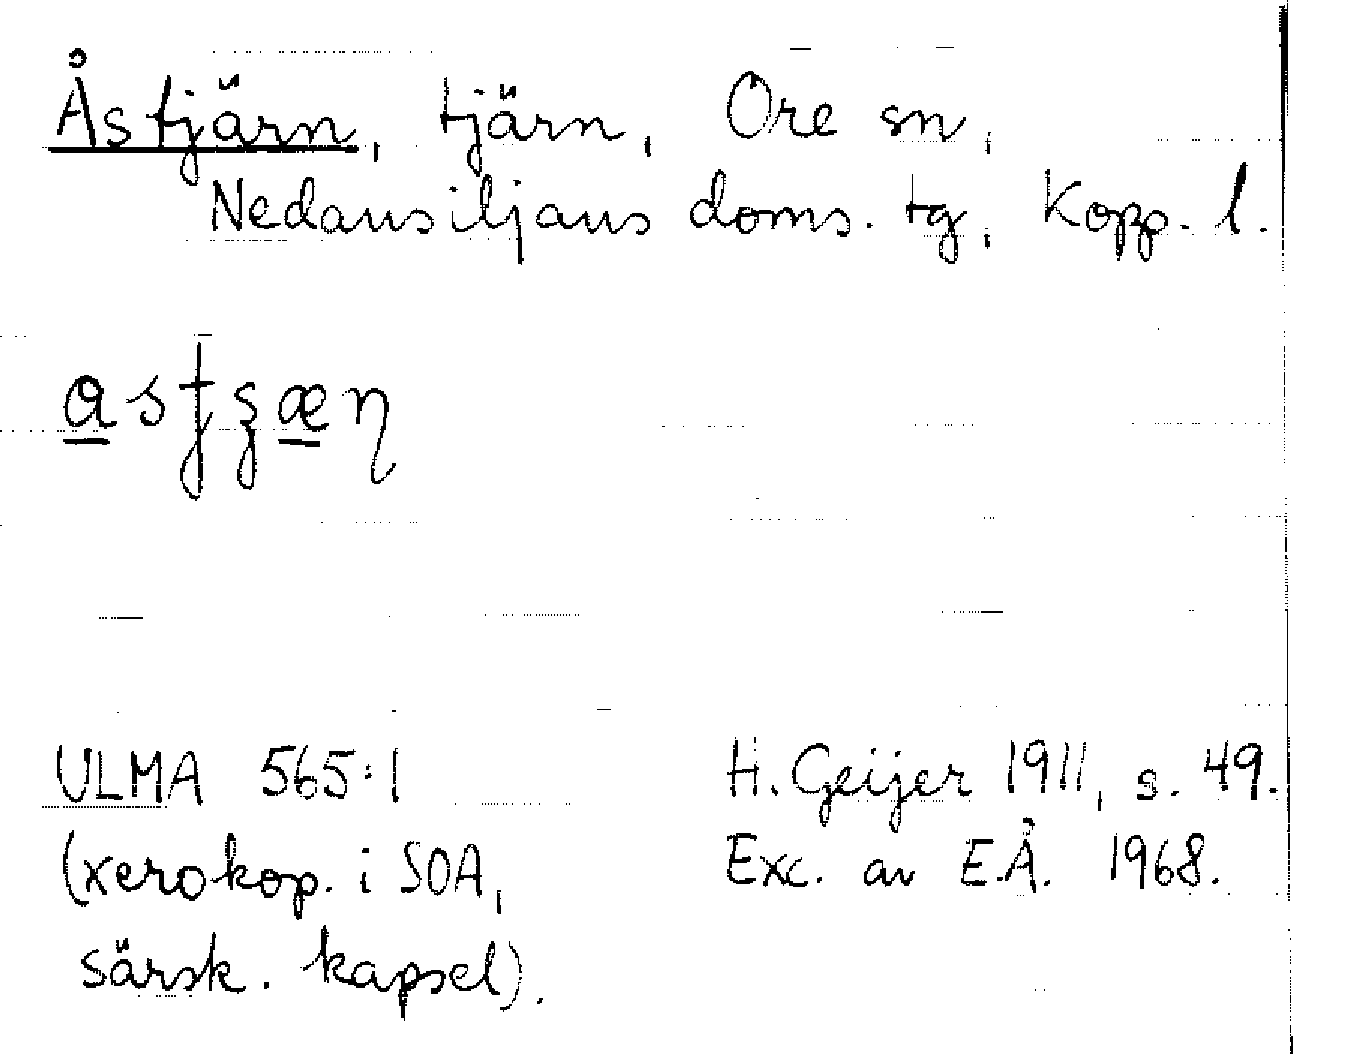 Åstjärn, tjärn, Ore sn,
Nedansiljans doms. tg, Kopp. l.
ULMA 565:1
(xerokop. i SOA,
särsk. kapsel).
H. Geijer 1911, s. 49.
Exc. av E.Å. 1968.